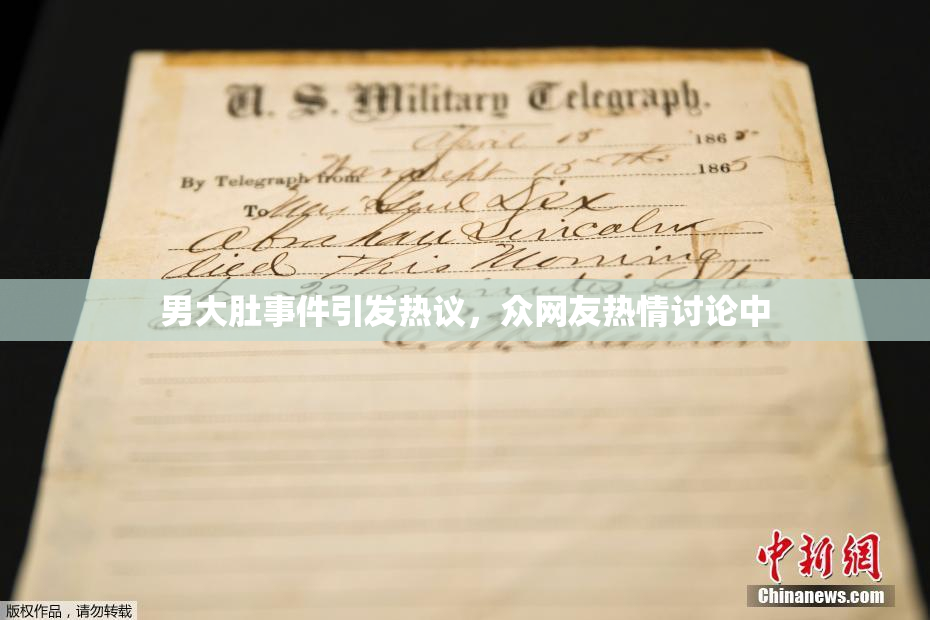 U. S. Military Telegraph.
April 15 1865
By Telegraph from War Dept 15th 1865
To Maj Genl Dix
Abraham Lincoln
died This Morning
at 22 minutes after
男大肚事件引发热议，众网友热情讨论中
E. M. Stanton
中新网
Chinanews.com
版权作品，请勿转载